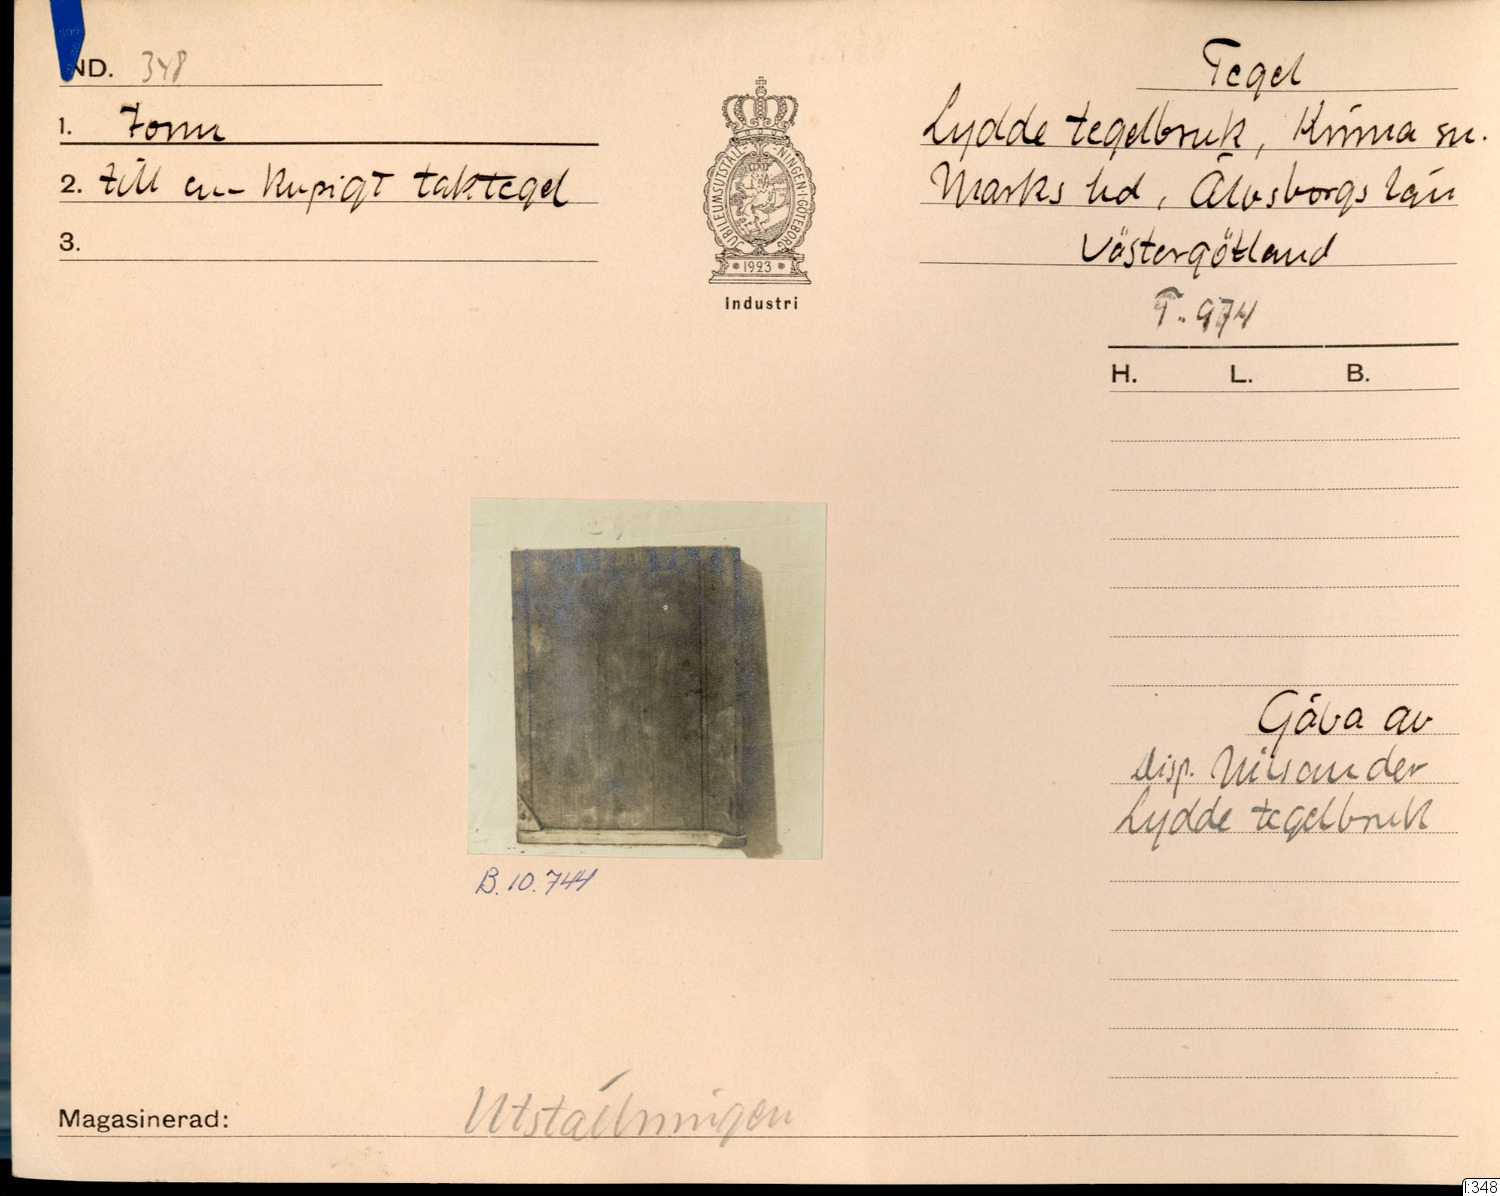 IND. 348
1. Form
2. till en- kupigt taktegel
3.
JUBILEUMSUTSTÄLLNINGEN·I·GÖTEBORG
1923
Industri
Tegel
Lydde tegelbruk, Kinna sn.
Marks hd, Älvsborgs län
Västergötland
T. 974
H. L. B.
B. 10.744
Gåva av
Disp.
Lydde tegelbruk
Magasinerad: Utställningen
I:348